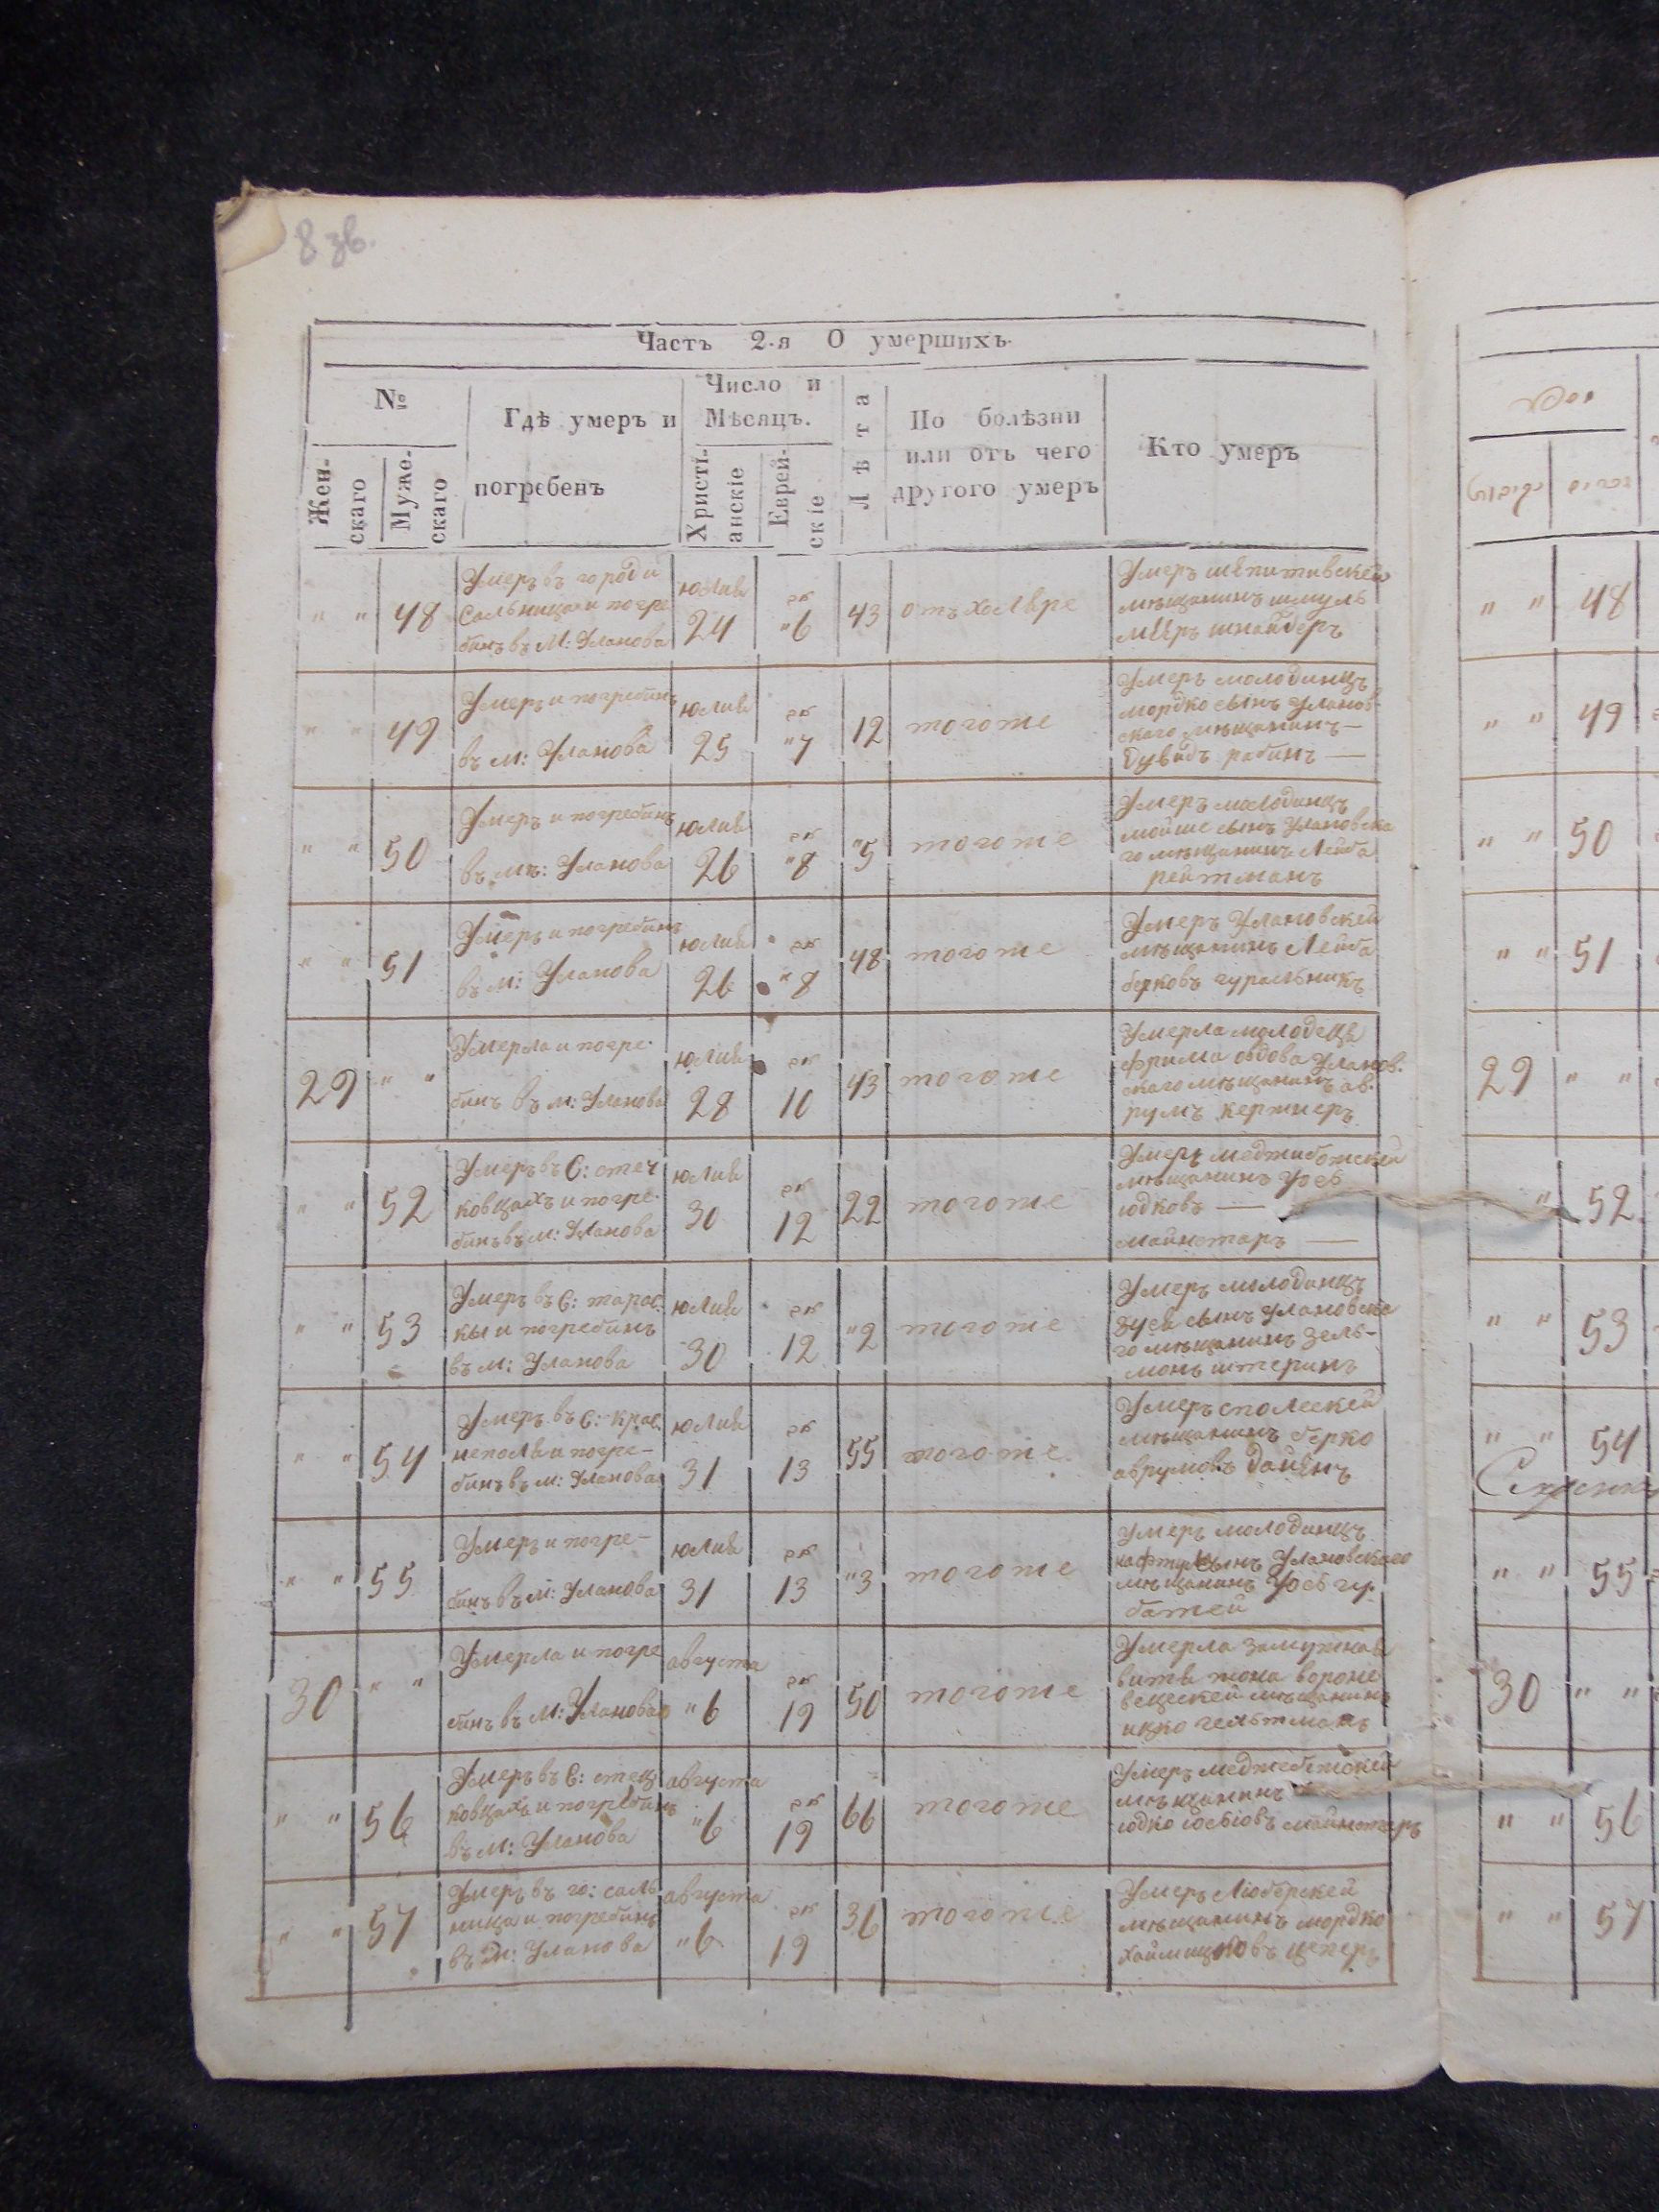 8 зв.
Часть 2-я О умершихъ.
№
Женскаго
Мужескаго
Гдѣ умеръ и
погребенъ
Число и
Мѣсяцъ.
Христіанскіе
Еврейскіе
Лѣта
По болѣзни
или отъ чего
другого умеръ
Кто умеръ
" " 48
Умеръ въ городи
Сальница и погре
бинъ въ М: Уланова
юлия
24
"6
43
отъ холѣре
Умеръ
мѣщанинъ шмуль
шнайдеръ
" " 49
Умеръ и погребинъ
въ м: Уланова
юлия
25
"7
12
тогоже
Умеръ молодинцъ
мордко сынъ Уланов
ского мѣщанинъ —
Дувидъ рабинъ —
" " 50
Умеръ и погребинъ
въ мъ: Уланова
юлия
26
"8
"5
тогоже
Умеръ молодинцъ
мойше сынъ Улановска
го мѣщанинъ Лейба
рейтманъ
" " 51
Умеръ и погребинъ
въ м: Уланова
юлия
26
"8
48
тогоже
Умеръ Улановскей
мѣщанинъ Лейба
берковъ гуральникъ
29 " "
Умерла и погре-
бинъ въ м: Уланова
юлия
28
10
43
тогоже
Умерла молодеца
фрима вдова Уланов.
скаго мѣщанинъ ав.
румъ кержнеръ
" " 52
Умеръ въ С: стеч
ковцахъ и погре.
бинъ въ м: Уланова
юлия
30
12
22
тогоже
Умеръ меджибожскей
мѣщанинъ
юдковъ —
майнстаръ —
" " 53
Умеръ въ С: тарас.
кы и погребинъ
въ м: Уланова
юлия
30
12
"2
тогоже
Умеръ молодинцъ
зуся сынъ Улановска
го мѣщанинъ Зель-
монъ штеринъ
" " 54
Умеръ въ С: крас.
неполѣ и погре-
бинъ въ м: Уланова
юлия
31
13
55
тогоже
Умеръ
мѣщанинъ берко
аврумовъ
" " 55
Умеръ и погре-
бинъ въ м: Уланова
юлия
31
13
"3
тогоже
Умеръ молодинцъ
сынъ Улановского
мѣщанинъ гур.
батей
30 " "
Умерла и погре
бинъ въ М: Уланова
августа
"6
19
50
тогоже
Умерла замужная
жона вороне
вецскей мѣщанинъ
ицко
" " 56
Умеръ въ С: стец
ковцахъ и погребинъ
въ м: Уланова
августа
"6
19
66
тогоже
Умеръ
мѣщанинъ
юдко майнстаръ
" " 57
Умеръ въ го: саль
ница и погребинъ
въ м: Уланова
августа
"6
19
36
тогоже
Умеръ
мѣщанинъ мордко
" " 48
" " 49
" " 50
" " 51
29 " "
" 52
" " 53
" " 54
" " 55
30 " "
" " 56
" " 57